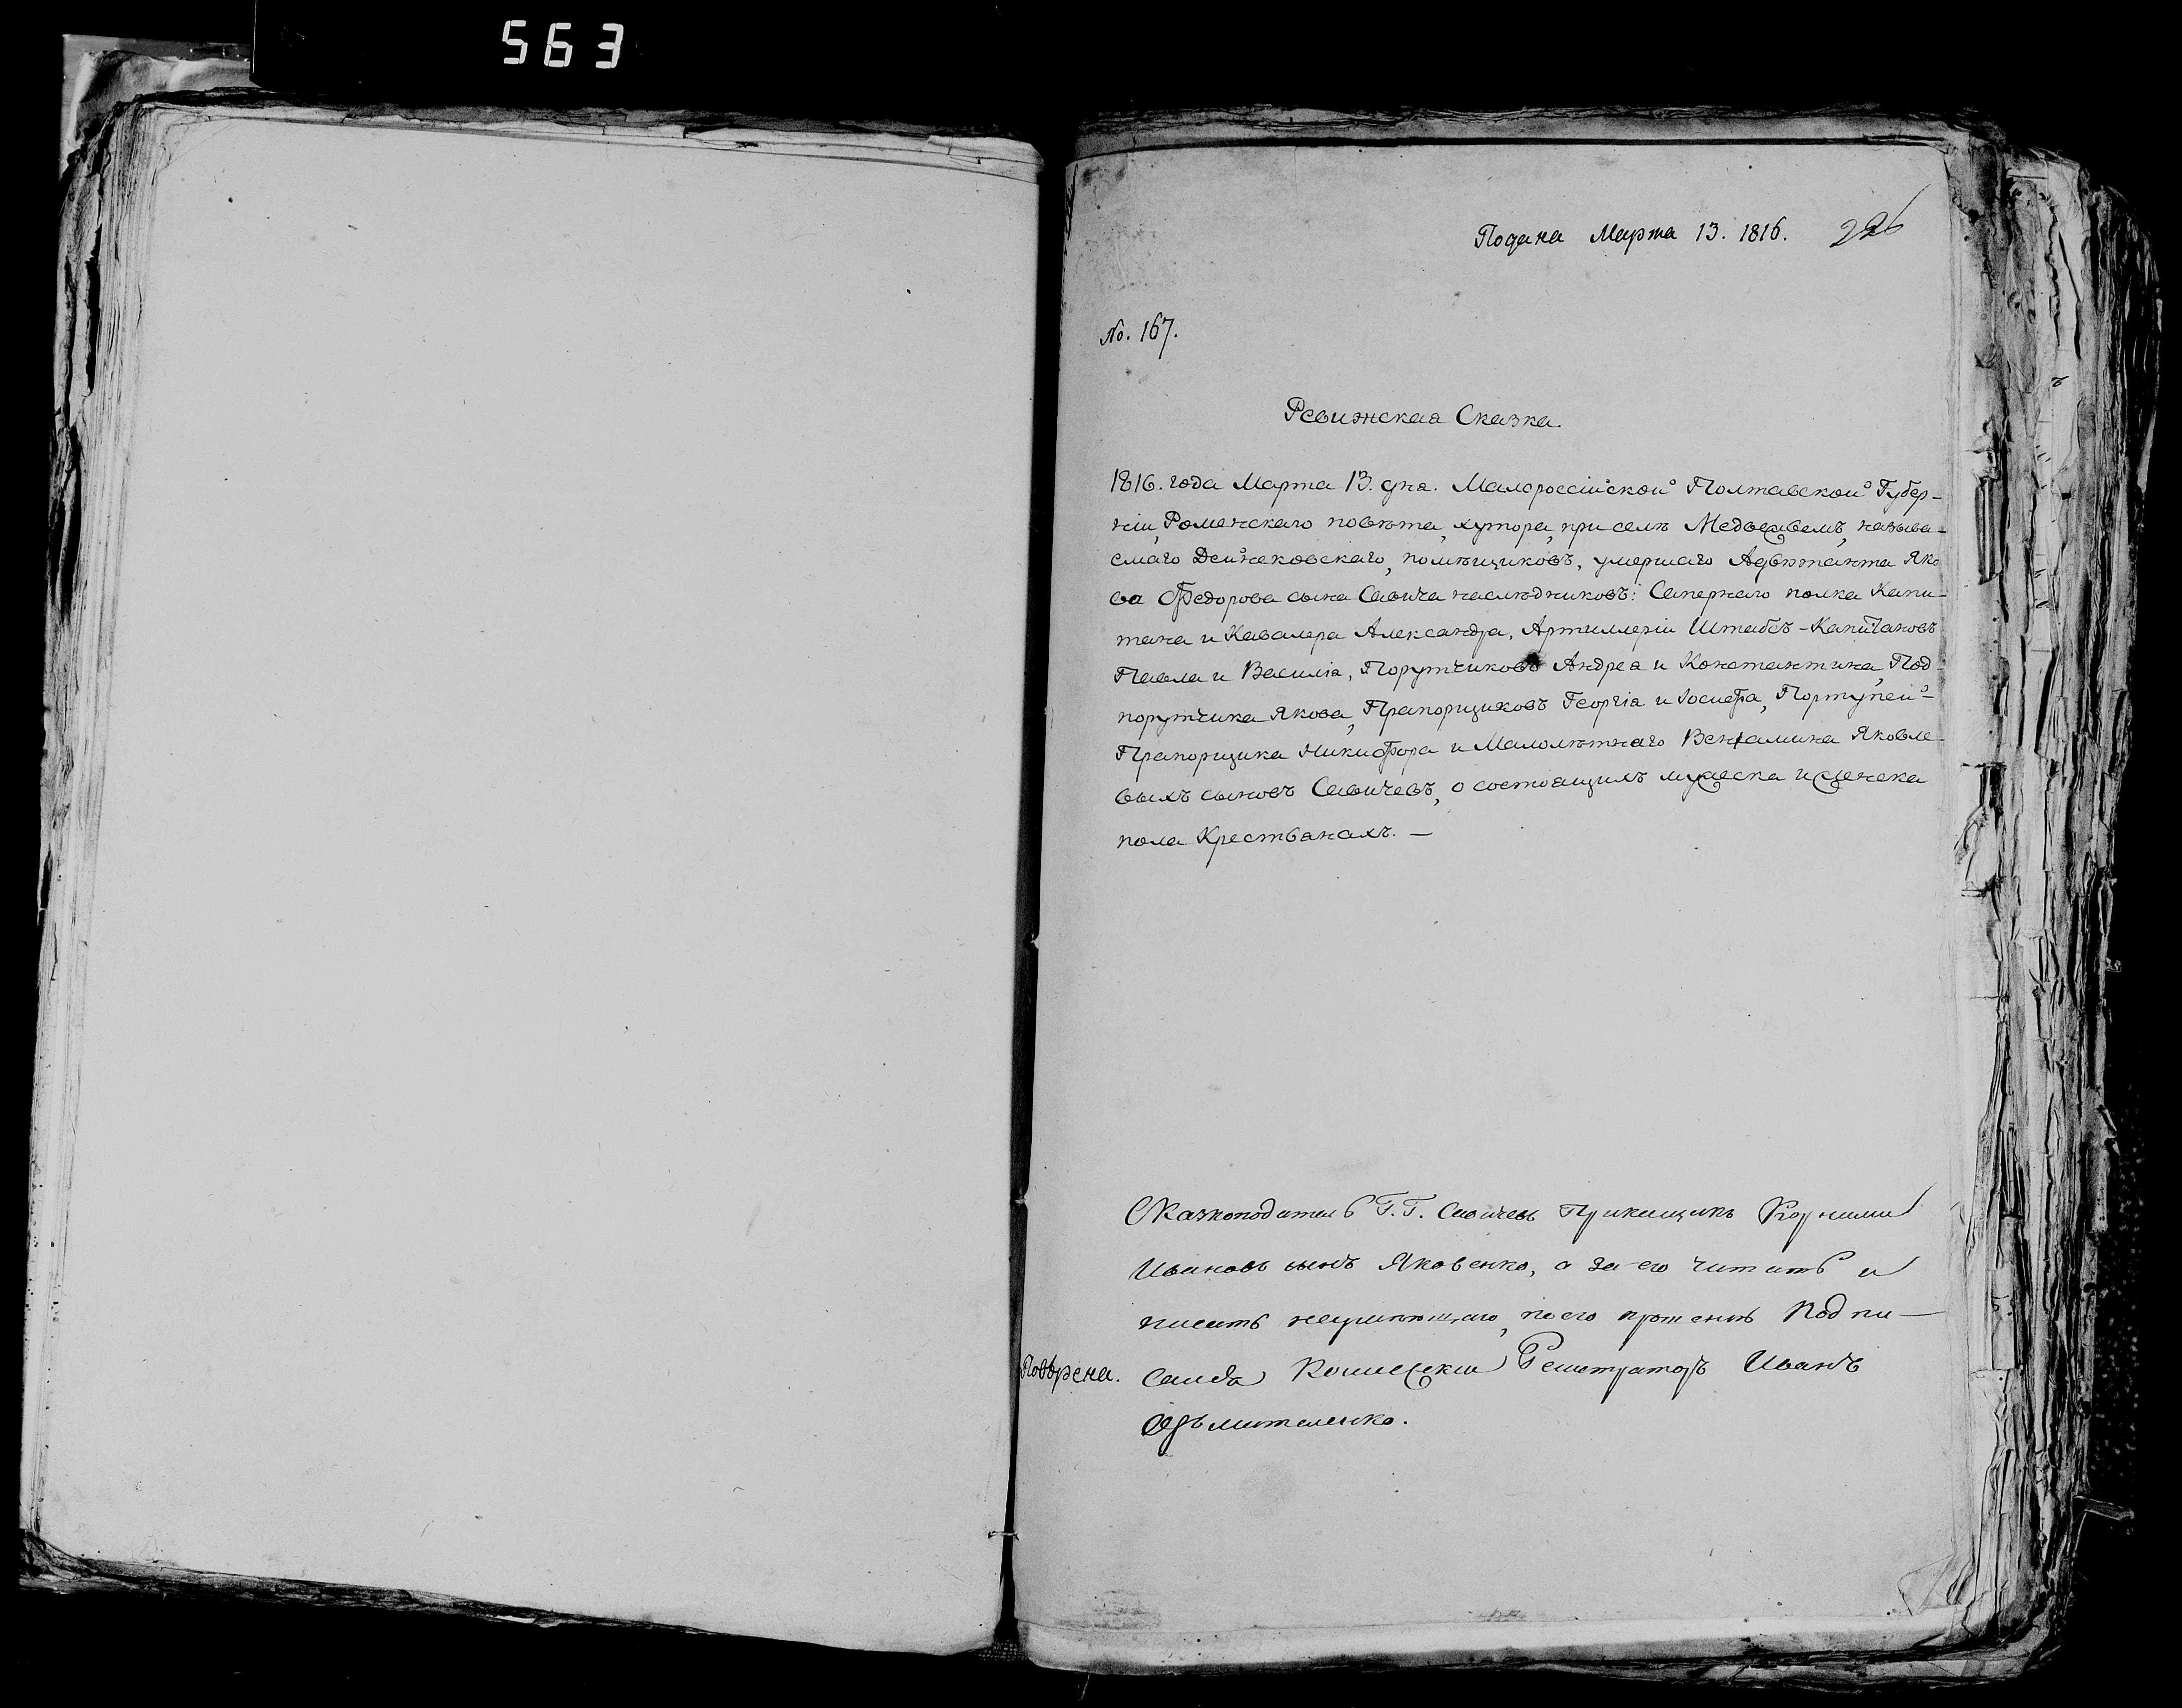 563
Подана Марта 13. 1816. 226
No. 167.
Ревижская Сказка.
1816. года Марта 13. дня. Малороссійской Полтавской Губер-
ніи, Роменскаго повѣта, хутора, при селѣ Медвежемъ, называ-
емаго Дейнековскаго, помѣщиковъ, умершаго Адъютанта Яко
ва Федорова сына Савича наслѣдниковъ: Сапернаго полка Капи-
тана и Кавалера Александра, Артиллеріи Штабсъ-Капитановъ
Павла и Василія, Порутчиковъ Андрея и Константина, Под-
порутчика Якова, Прапорщиковъ Георгія и Іосифа, Портупей-
Прапорщика Никифора и Малолѣтнаго Веніамина Яковле-
выхъ сыновъ Савичевъ, о состоящихъ мужеска и женска
пола Крестьянахъ. —
Сказкоподатель Г.Г. Савичевъ Прикащикъ Корнилий
Ивановъ сынъ Яковенко, а за его читать и
писать неумѣющаго, по его прошенію Подпи-
Повѣрена. сался Колležский Регистраторъ Иванъ